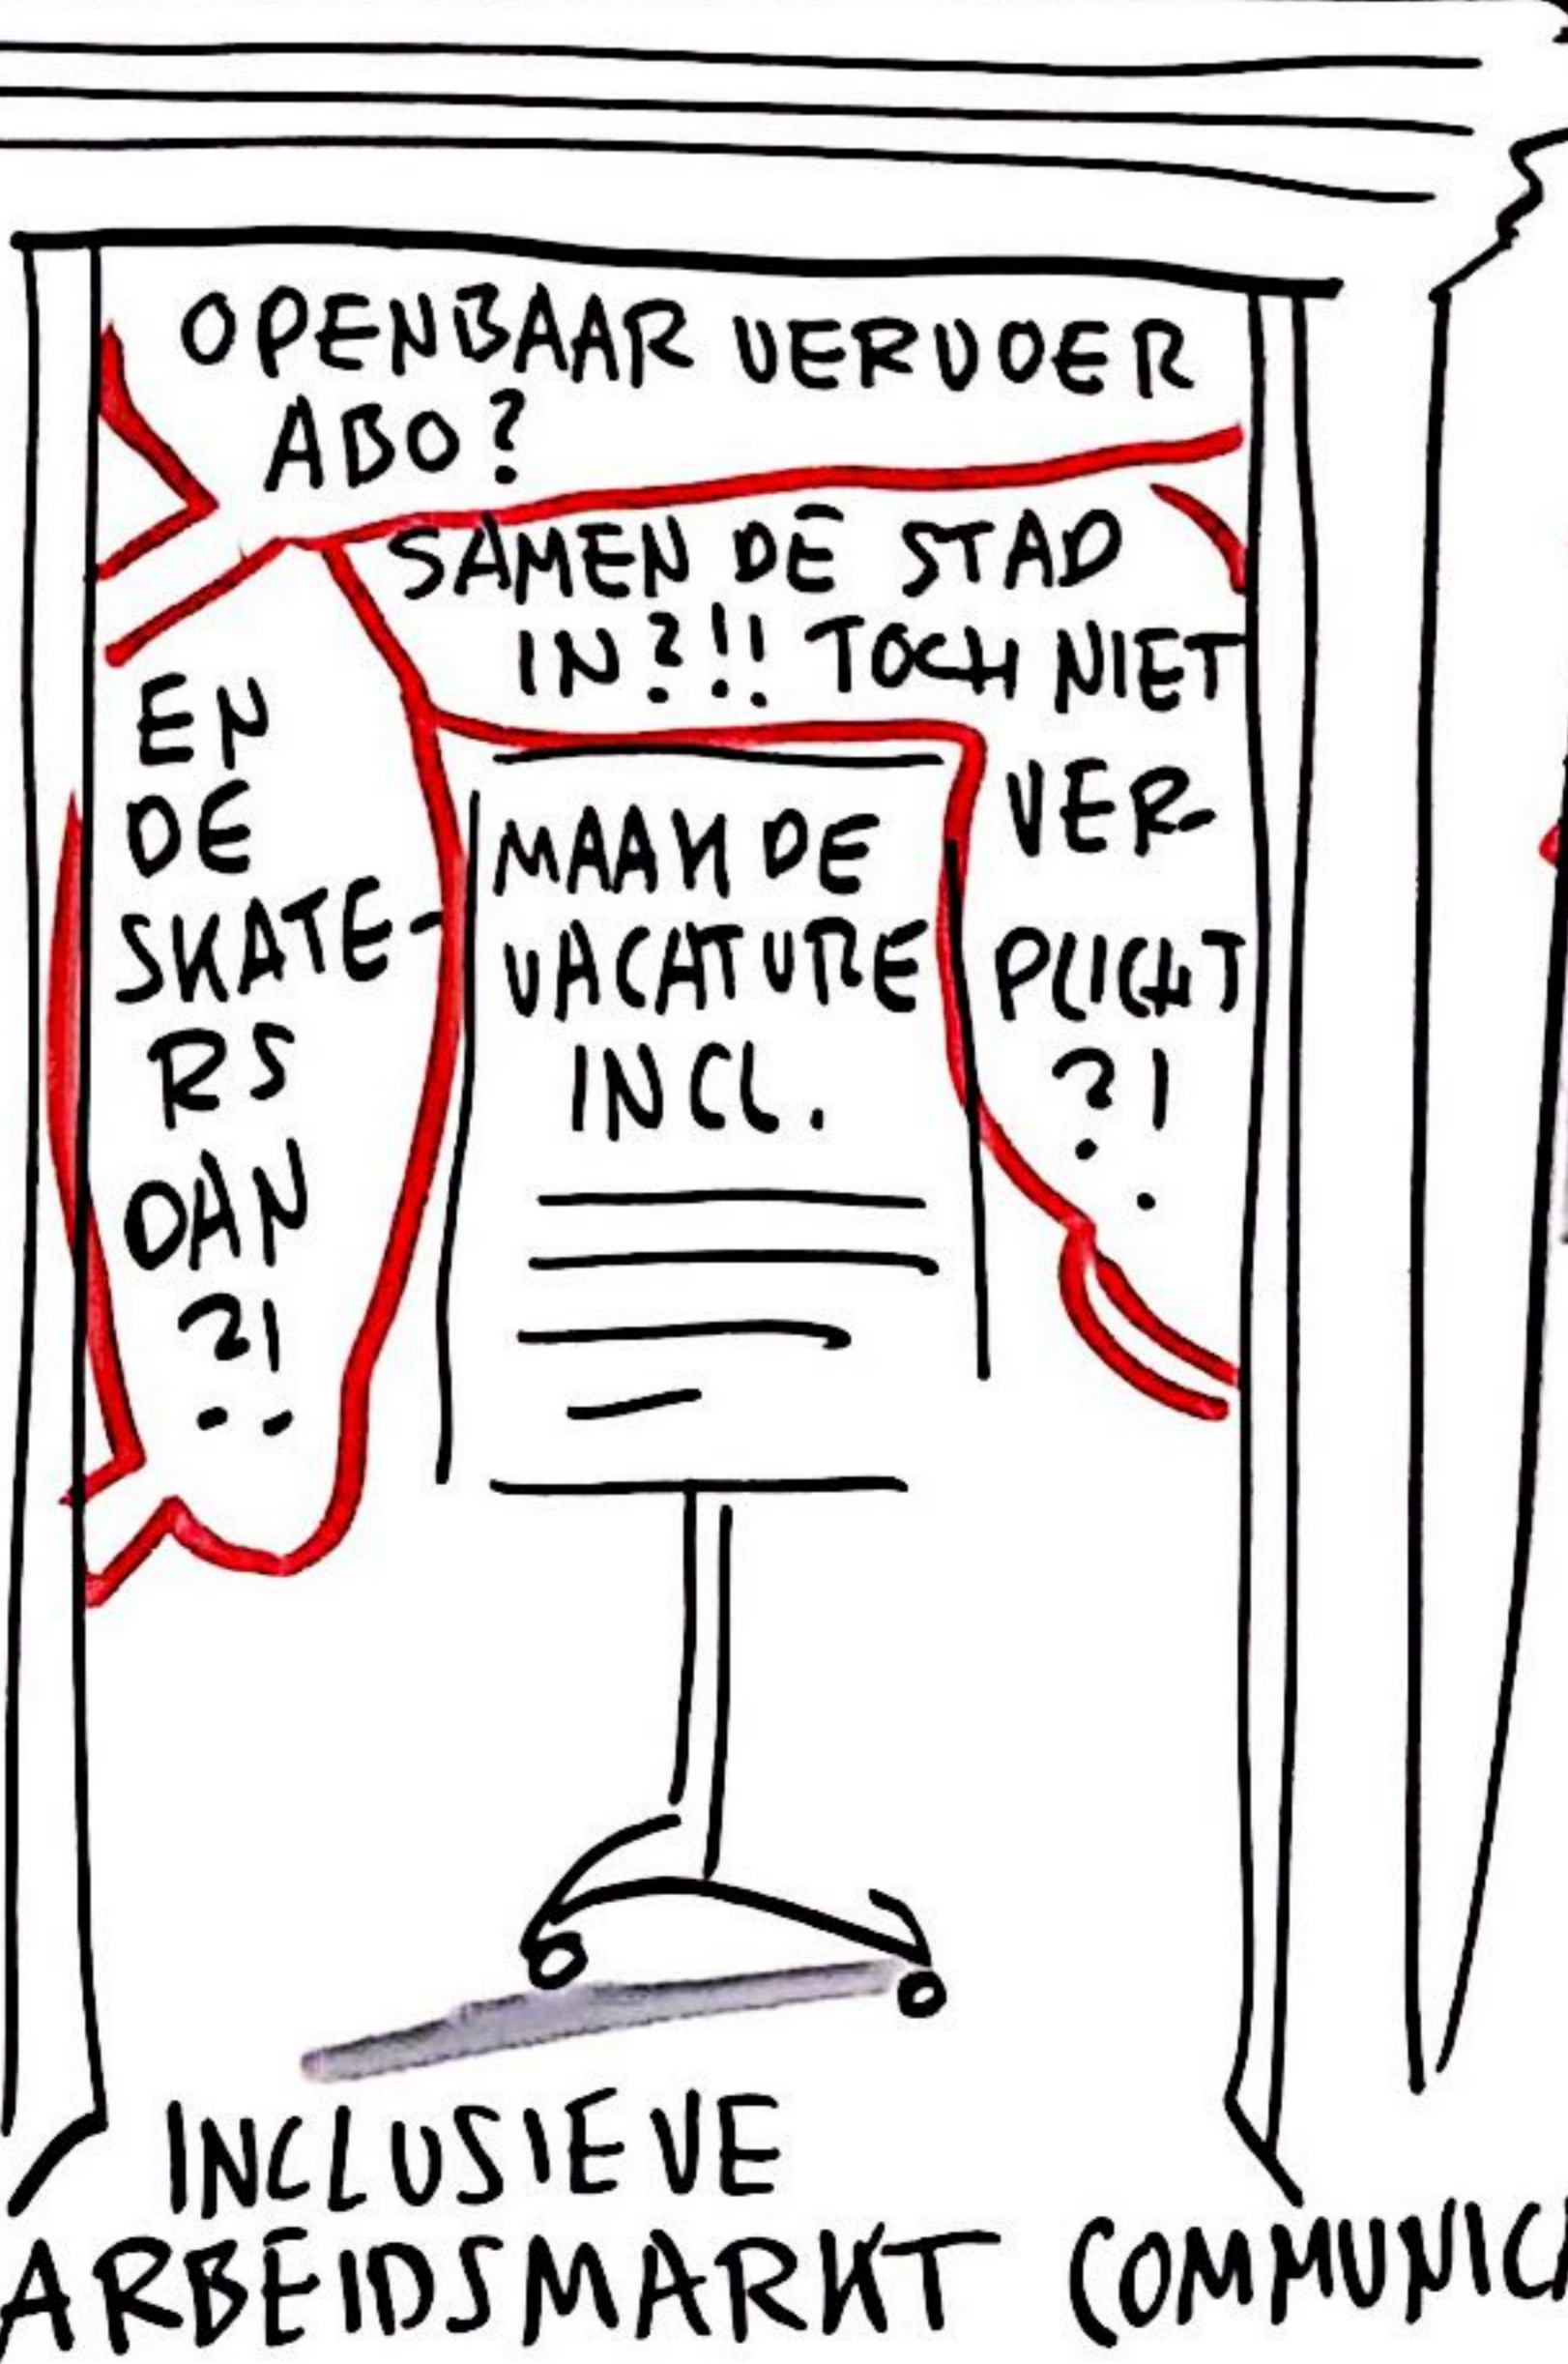 OPENBAAR VERVOER
ABO?
SAMEN DE STAD
IN?!! TOCH NIET
VER-
PLICHT
?!
EN
DE
SKATE-
RS
DAN
?!
MAAK DE
VACATURE
INCL.
INCLUSIEVE
ARBEIDSMARKT COMMUNICA